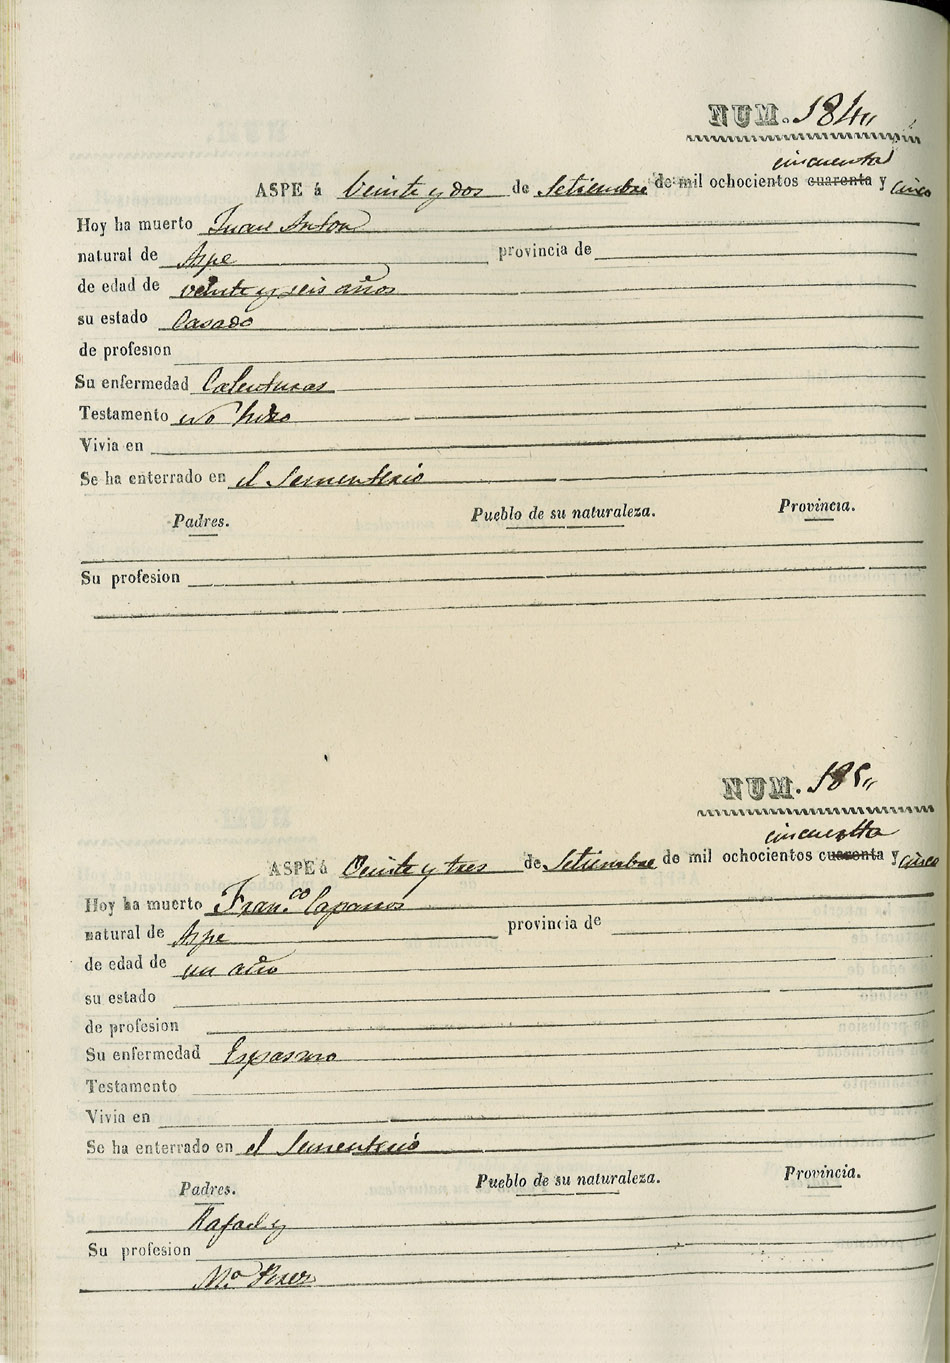 NUM. 184,,
cincuenta
ASPE á Veinte y dos de Setiembre de mil ochocientos cuarenta y cinco
Hoy ha muerto Juan Anton
natural de Aspe provincia de
de edad de veinte y seis años
su estado Casado
de profesion
Su enfermedad Calenturas
Testamento no hizo
Vivia en
Se ha enterrado en el Sementerio
Padres. Pueblo de su naturaleza. Provincia.
Su profesion
NUM. 185,,
cincuenta
ASPE á Veinte y tres de Setiembre de mil ochocientos cuarenta y cinco
Hoy ha muerto Fran.co Caparros
natural de Aspe provincia de
de edad de un año
su estado
de profesion
Su enfermedad Espasmo
Testamento
Vivia en
Se ha enterrado en el Sementerio
Padres. Pueblo de su naturaleza. Provincia.
Rafael y
Su profesion
Ma Perez